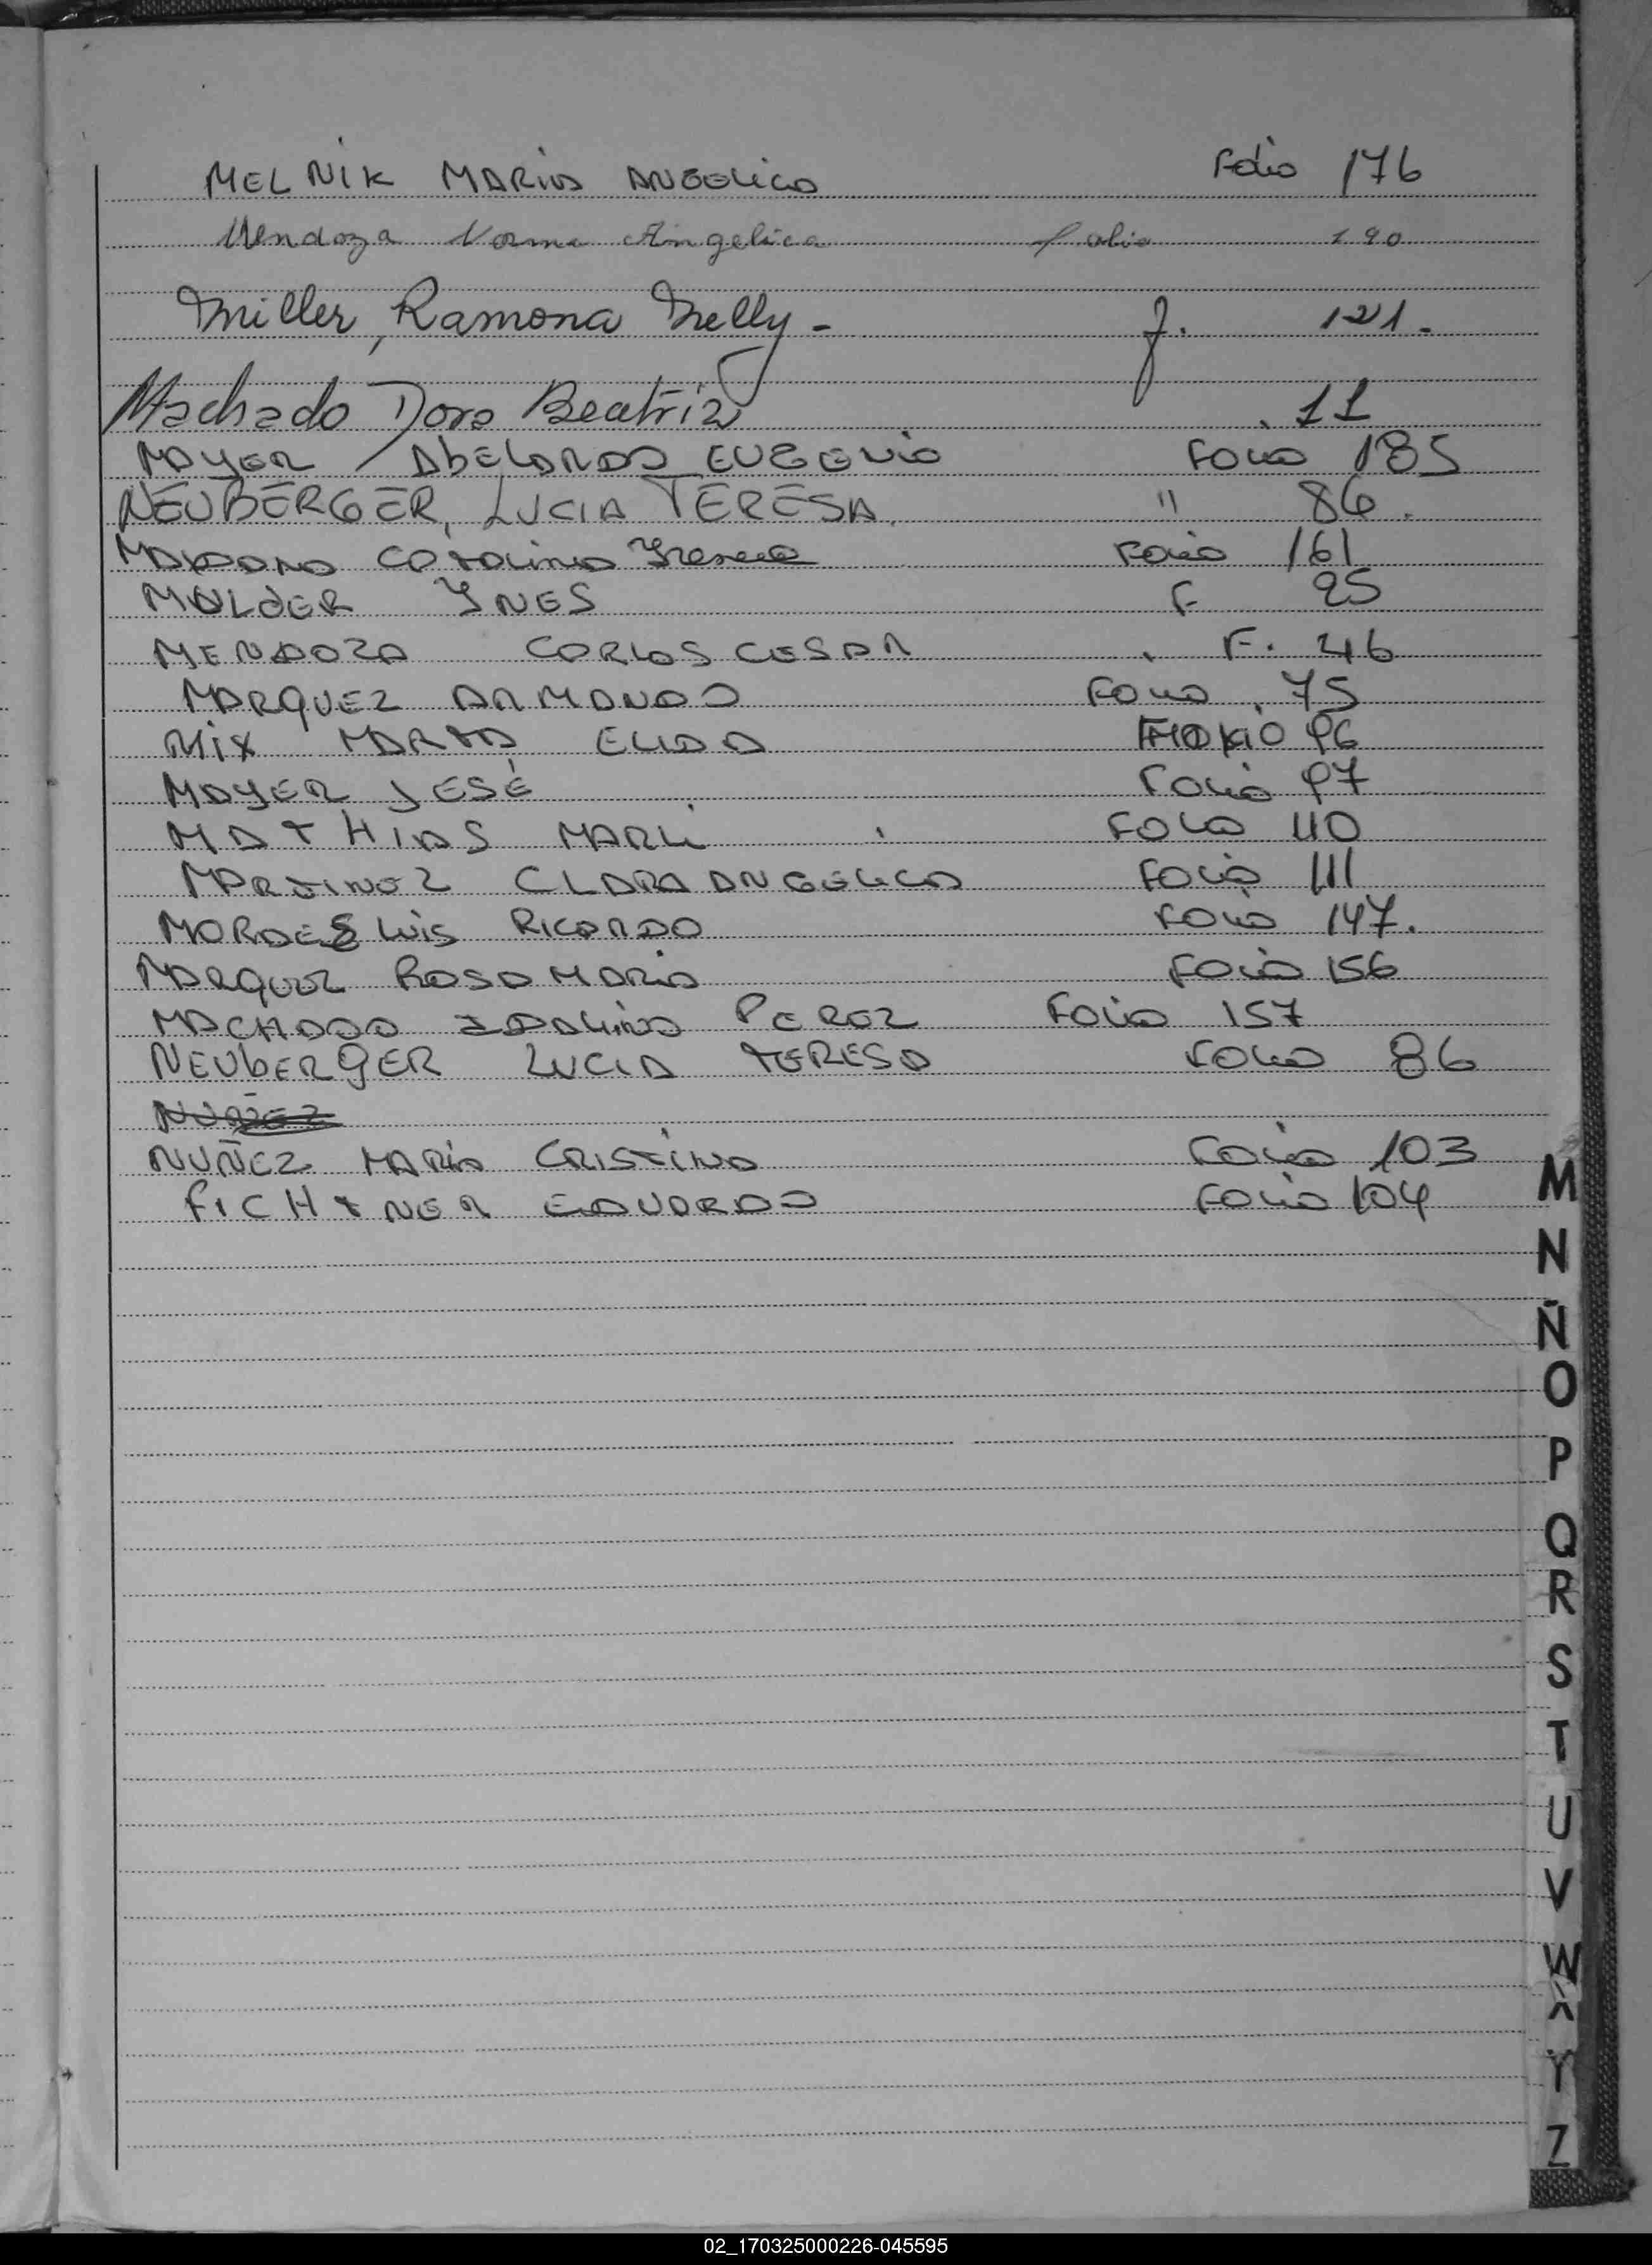 MELNIK MARIA ANGELICA Folio 176
Mendoza Norma Angelica folio 190
Miller, Ramona Nelly - f. 121.
Machado Dora Beatriz 11
MAYER ABELARDO EUGENIO FOLIO 185
NEUBERGER, LUCIA TERESA. " 86.
CATALINA FOLIO 161
MULDER YNES F 25
MENDOZA CARLOS CESAR F. 46
MARQUEZ ARMANDO FOLIO 75
MIX MARTA ELIDA 96
MAYER JESÉ FOLIO 97
MATHIAS MARLI FOLIO 110
MARTINEZ CLARA ANGELICA FOLIO 111
LUIS RICARDO FOLIO 147.
MARQUEZ ROSA MARIA FOLIO 156
MACHADO IDALINA PEREZ FOLIO 157
NEUBERGER LUCIA TERESA FOLIO 86
NUÑEZ MARIA CRISTINA FOLIO 103
FICHTNER EDUARDO FOLIO 104
M
N
Ñ
O
P
Q
R
S
T
U
V
W
X
Y
Z
02_170325000226-045595